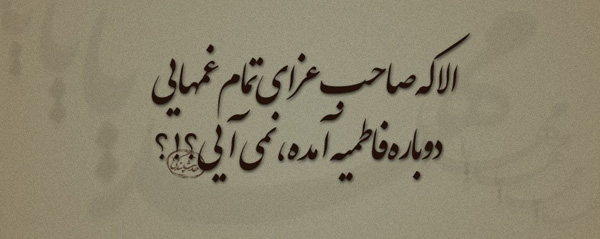 الا که صاحب عزای تمام غمهایی
دوباره فاطمیه آمده، نمی آیی؟!؟